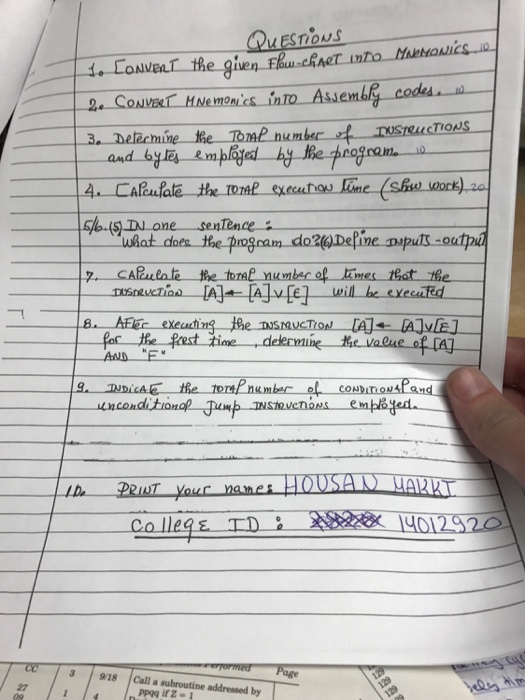 QUESTIONS
1. CONVERT the given Flow-chART INTO MNEMONICS. 10
2. CONVERT MNemonics inTO Assembly codes. 10
3. Determine the TOTAL number of INSTRUCTIONS
and bytes employed by the program. 10
4. CALculate the TOTAL execution time (show work). 20
5/6. (5) IN one sentence :
What does the program do? (6) Define inputs - output
7. CALculate the total number of times that the
INSTRUCTION [A] ← [A] V [E] will be executed
8. AFTER executing the INSTRUCTION [A] ← [A] V [E]
for the first time, determine the value of [A]
AND "F"
9. INDICATE the TOTAL number of CONDITIONAL and
unconditional Jump INSTRUCTIONS employed.
10. PRINT your names HOUSAN MAKKI
College ID : 14012920
CC 3 9/18 Call a subroutine addressed by
ppqq if Z = 1
Page
27
09
1 4
129
129
129